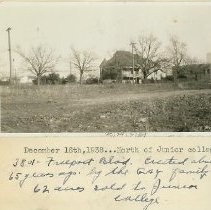 December 18th,1938...North of Junior colleg
3801 - Freeport Blvd. Erected abou
65 years ago. by the Gay family
62 acres sold to Junior
College